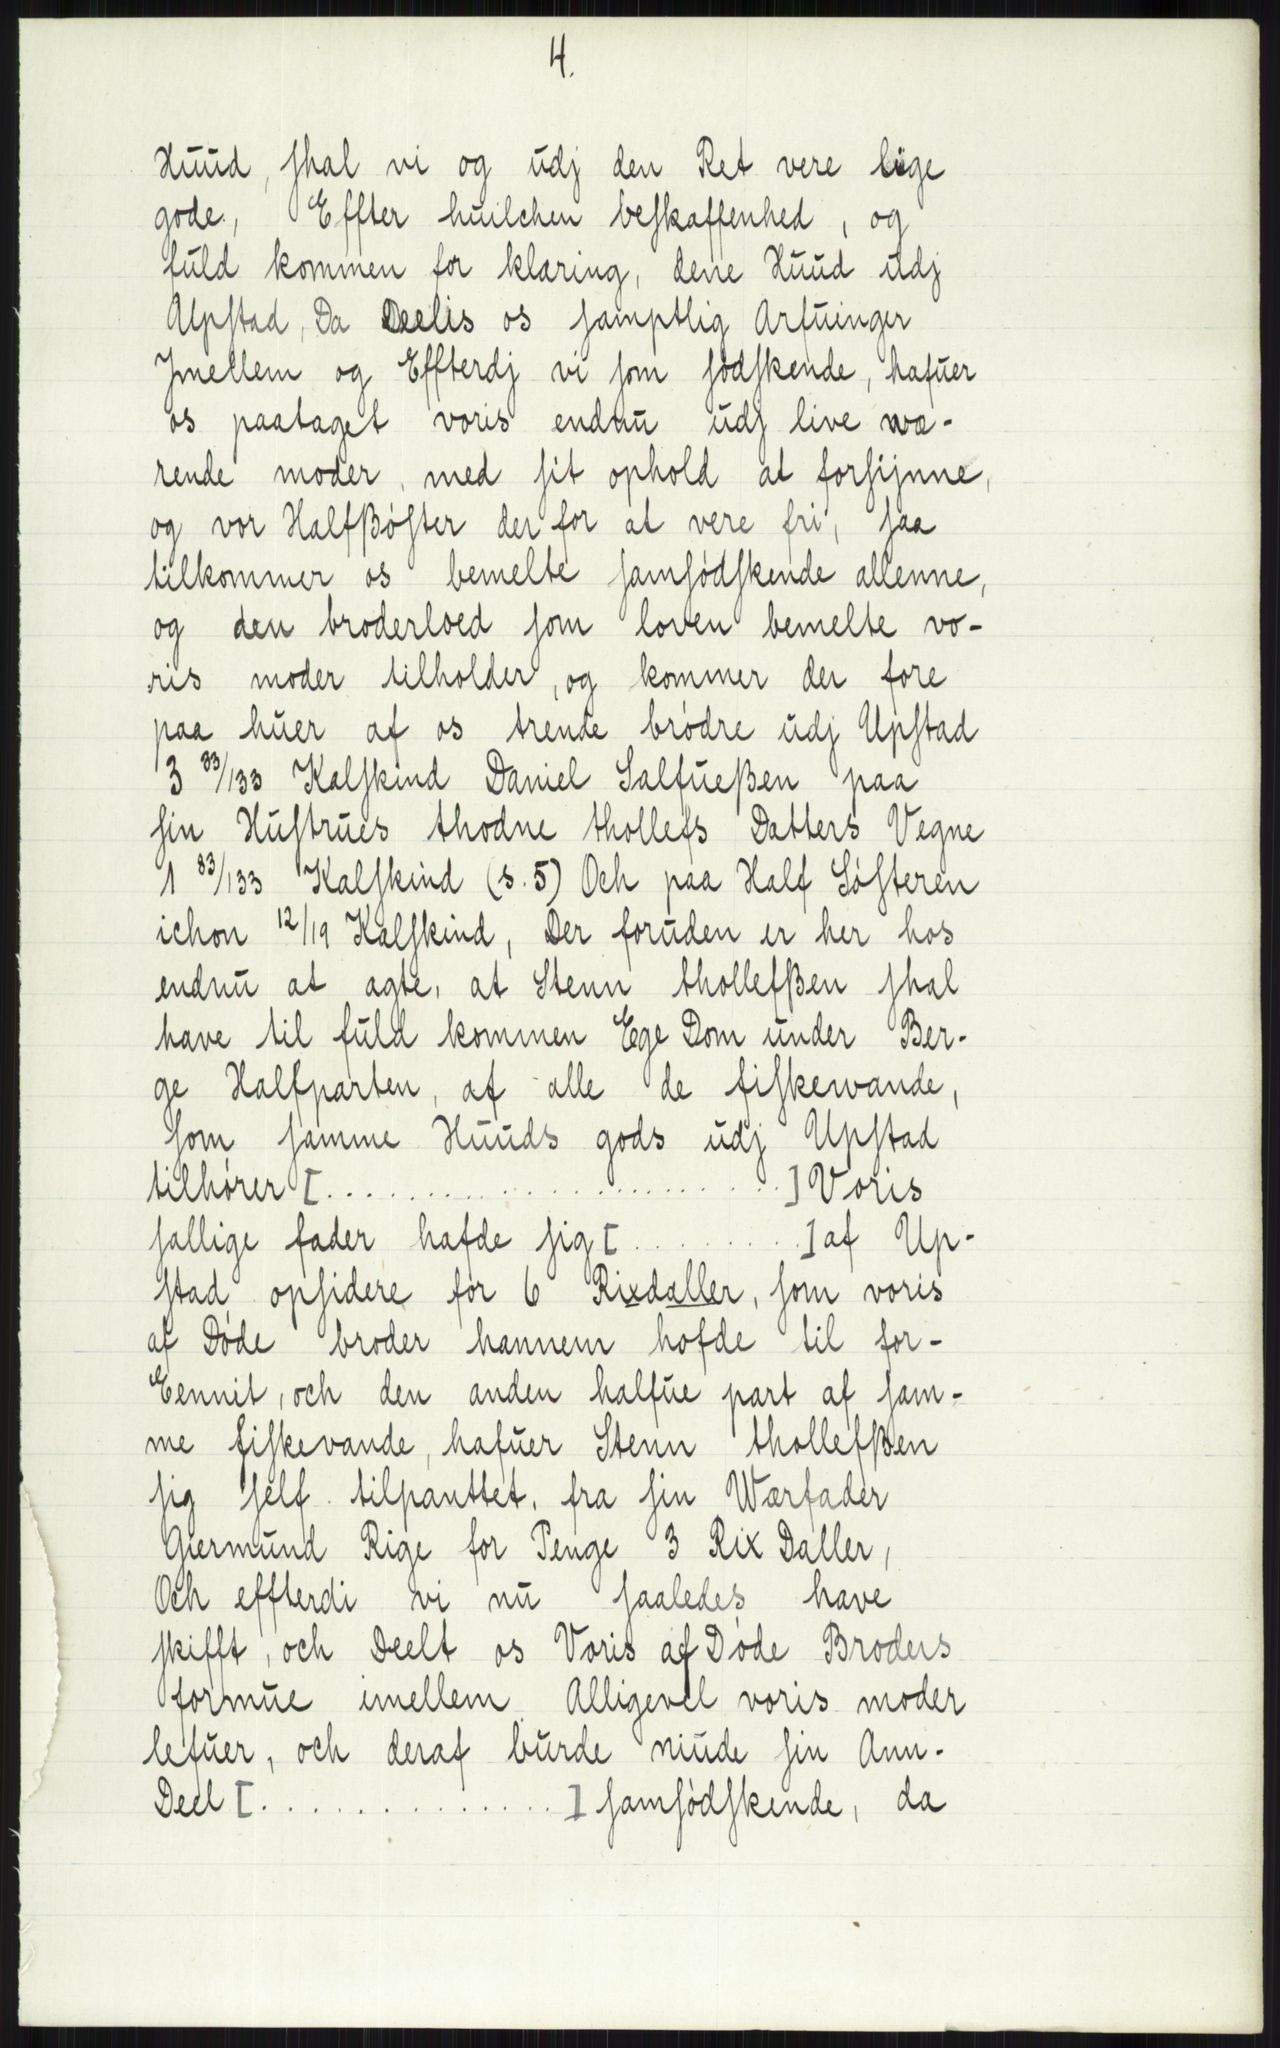 4.
Huud, skal vi og udj den Ret vere lige
gode, Effter huilchen beskaffenhed, og
fuld kommen for klaring, dene Huud udj
Upstad, Da Deelis os samptlig Arfuinger
Jmellem og Effterdj vi som sødskende, hafuer
os paataget voris endnu udj live wæ-
rende moder, med sit ophold at forsijnne,
og vor Halfßøster der for at vere fri, saa
tilkommer os bemelte samsødskende allenne,
og den broderloed som loven bemelte vo-
ris moder tilholder, og kommer der fore
paa huer af os trende brødre udj Upstad
3 33/133 Kalskind Daniel Salfueßen paa
sin Hustrues thodne thollefs Datters Vegne
1 83/133 Kalskind (s. 5) Och paa Half Søsteren
ichon 12/19 Kalskind, Der foruden er her hos
endnu at agte, at Stenn thollefßen skal
have til fuld kommen Ege Dom under Ber-
ge Halfparten, af alle de fiskewande,
som samme Huuds gods udj Upstad
tilhører [. . . . . . . . . . . . . . . . . . . . . . .] Voris
sallige fader hafde sig [. . . . . . . . .] af Up-
stad, opsidere for 6 Rixdaller, som voris
af Døde broder hannem hofde til for-
Eennit, och den anden halfue part af sam-
me fiskevande, hafuer Stenn thollefßen
sig self tilpanttet, fra sin Wærfader
Giermund Rige for Penge 3 Rix Daller,
Och effterdi vi nu saaledes have
skifft, och Deelt os Voris af Døde Broders
formue imellem Alligevel voris moder
lefuer, och deraf burde niude sin Ann-
Deel [. . . . . . . . . . . . . . .] samsødskende, da